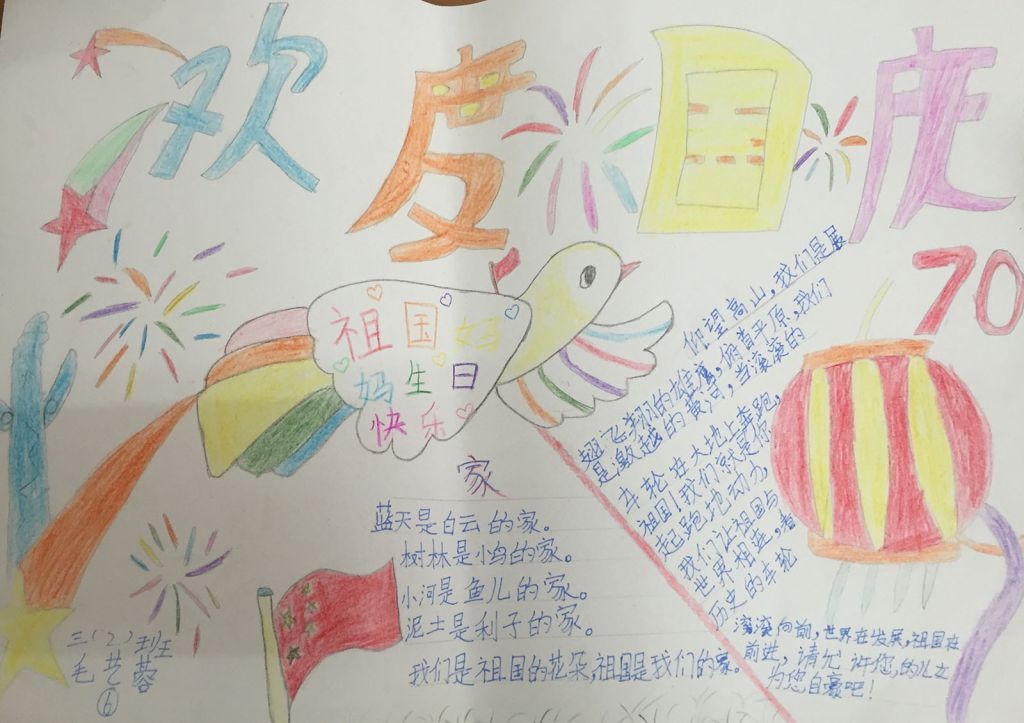 欢度国庆
70
祖国妈
妈生日
快乐
仰望高山,我们是展
翅飞翔的雄鹰,俯首平原,我们
是激越的黄河,当滚滚的
车轮在大地上奔跑,
祖国!我们就是你
起跑地动力,
我们让祖国与
世界相连,看
历史的车轮
滚滚向前,世界在发展,祖国在
前进,请允许您,的儿女
为您自豪吧!
家
蓝天是白云的家。
树林是小鸟的家。
小河是鱼儿的家。
泥土是利子的家。
我们是祖国的花朵,祖国是我们的家。
三(2)班
毛艺蓉
⑥